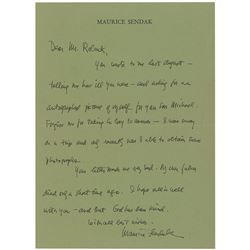 MAURICE SENDAK
Dear Mr. Rolnick,
You wrote to me last August -
telling me how ill you were - and asking for an
autographed picture of myself for your son Michael.
Forgive me for taking so long to answer - I was away
on a trip and only recently was I able to obtain some
photographs.
Your letter made me very sad. My own father
died only a short time ago. I hope all is well
with you - and that God has been kind.
With all best wishes -
Maurice Sendak